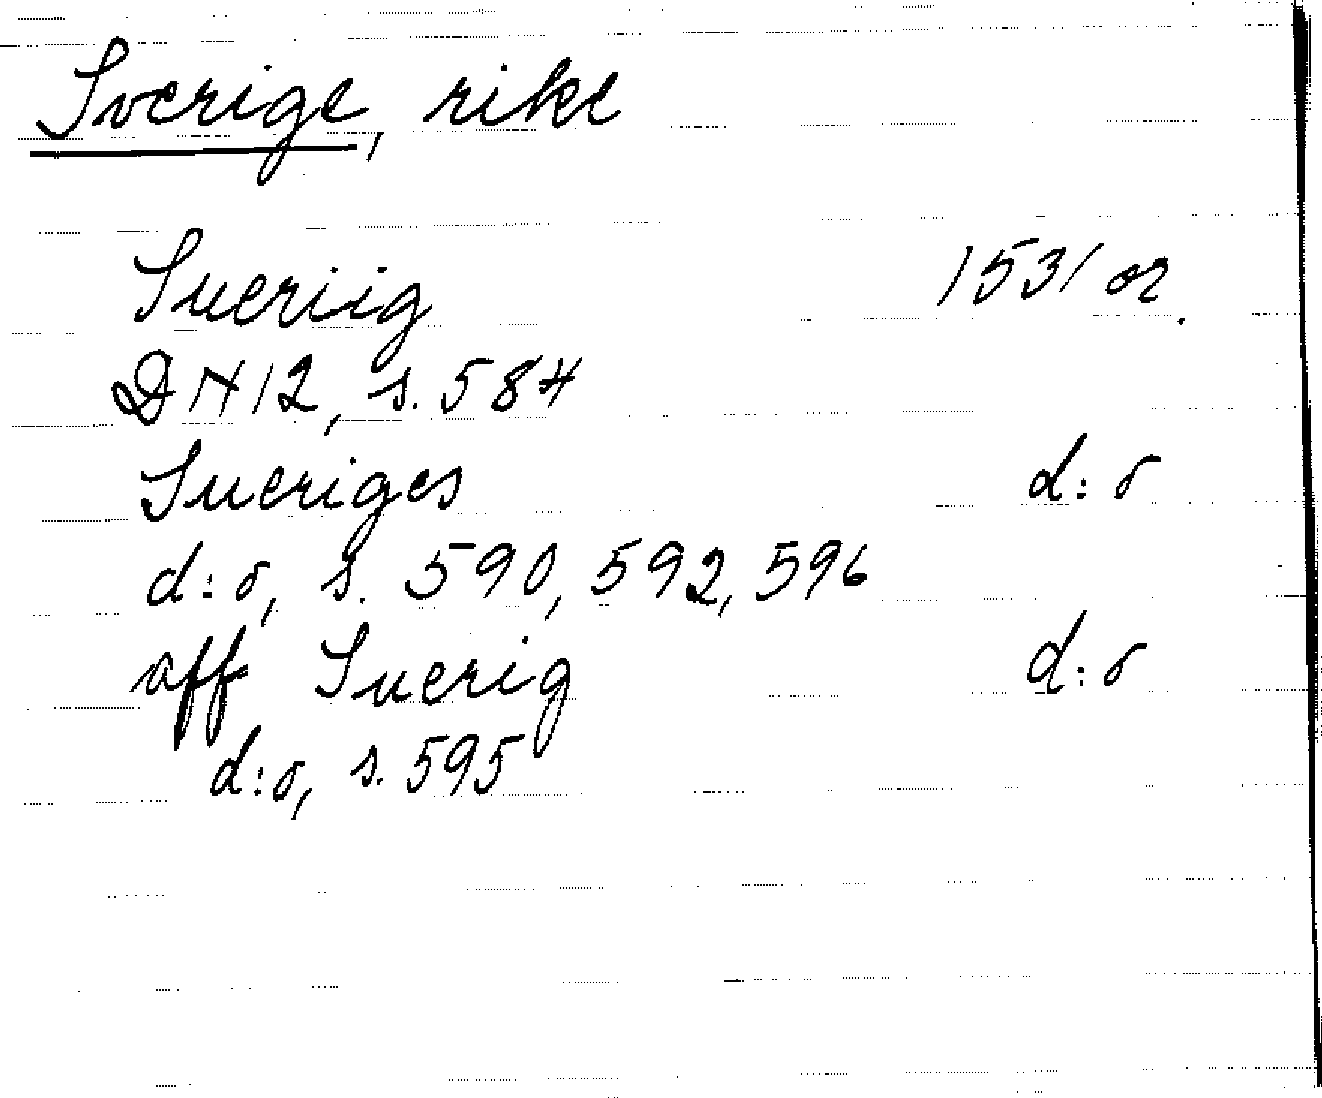 Sverige, rike
Sueriig 1531 or.
DN 12, s. 584
Sueriges d:o
d:o, s. 590, 592, 596
aff Suerig d:o
d:o, s. 595